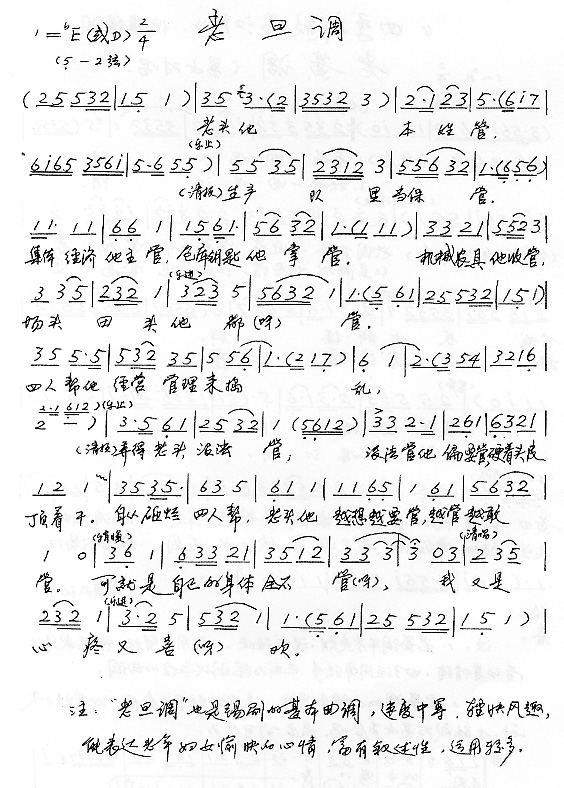 1=ᵇE(或D) 2/4 老旦调
(5-2弦)
(2 5 5 3 2 | 1 5 1) | 3 5 3·(2 | 3 5 3 2 3) | 2·1 2 3 | 5·(6 i 7 |
老头他 本姓管.
(乐止)
6 i 6 5 3 5 6 i | 5·6 5 5) | 5 5 3 5 | 2 3 1 2 3 | 5 5 6 3 2 | 1·(6 5 6) |
(清板)生产 队 里 当保 管.
1 1· 1 1 | 6 6 1 | 1 5 6 1· | 5 6 3 2 | 1·(1 1 1) | 3 3 2 1 | 5 5 2 3 |
集体 经济 他主 管, 仓库钥匙 他 拿 管. 机械农具 他收管,
(乐进)
3 3 5 | 2 3 2 1 | 3 2 3 5 | 5 6 3 2 1 | 1·(5 6 1 | 2 5 5 3 2 | 1 5 1) |
场头 田 头他 都(呀) 管.
3 5 5·5 | 5 3 2 3 5 | 5 5 6 | 1·(2 1 7) | 6 1 | 2·(3 5 4 | 3 2 1 6 |
四人帮他 经营 管理来搞 乱,
2·1 6 1 2 (乐止)
2 — ) | 3·5 6 1 | 2 5 3 2 | 1 (5 6 1 2) | 3 3 2·1 | 2 6 1 | 6 3 2 1 |
(清板)弄得 老头 没法 管, 没法管他 偏要管,硬着头皮
1 2 1 | 3 5 3 5· | 6 3 5 | 6 1 1 | 1 1 6 5 | 1 6 1 | 5 6 3 2 |
顶着干. 自从砸烂 四人帮, 老头他 越想越要管,越管越敢
(稍慢) (清唱)
1 0 | 3 6 1 | 6 3 3 2 1 | 3 5 1 2 | 3 3 3 3 3 0 3 | 2 3 5 |
管. 可就是 自己的身体 全不 管(呀), 我 又是
(乐进)
2 3 2 1 | 3·2 5 | 5 3 2 1 | 1·(5 6 1 | 2 5 5 3 2 | 1 5 1 ) |
心 疼 又 喜(呀) 欢.
注:"老旦调"也是锡剧的基本曲调,速度中等.轻快风趣,
能表达老年妇女愉快的心情,富有叙述性,运用较多.